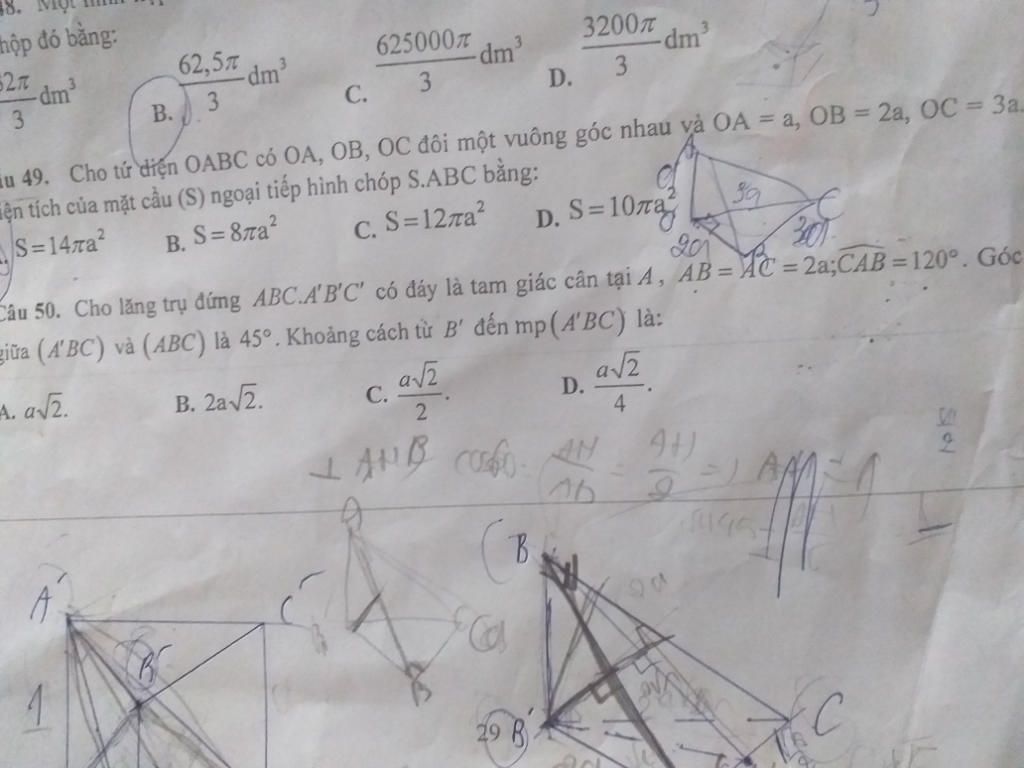 48. Một hình
hộp đó bằng:
32π/3 dm³ B. 62,5π/3 dm³ C. 625000π/3 dm³ D. 3200π/3 dm³
49. Cho tứ diện OABC có OA, OB, OC đôi một vuông góc nhau và OA = a, OB = 2a, OC = 3a.
tích của mặt cầu (S) ngoại tiếp hình chóp S.ABC bằng:
S=14πa² B. S=8πa² C. S=12πa² D. S=10πa²
A
C
3a
3a
2a
B
Câu 50. Cho lăng trụ đứng ABC.A'B'C' có đáy là tam giác cân tại A, AB = AC = 2a; CAB = 120°. Góc
giữa (A'BC) và (ABC) là 45°. Khoảng cách từ B' đến mp(A'BC) là:
A. a√2. B. 2a√2. C. a√2/2. D. a√2/4.
A' C' B'
1
A
B
B
2a
B' C
29